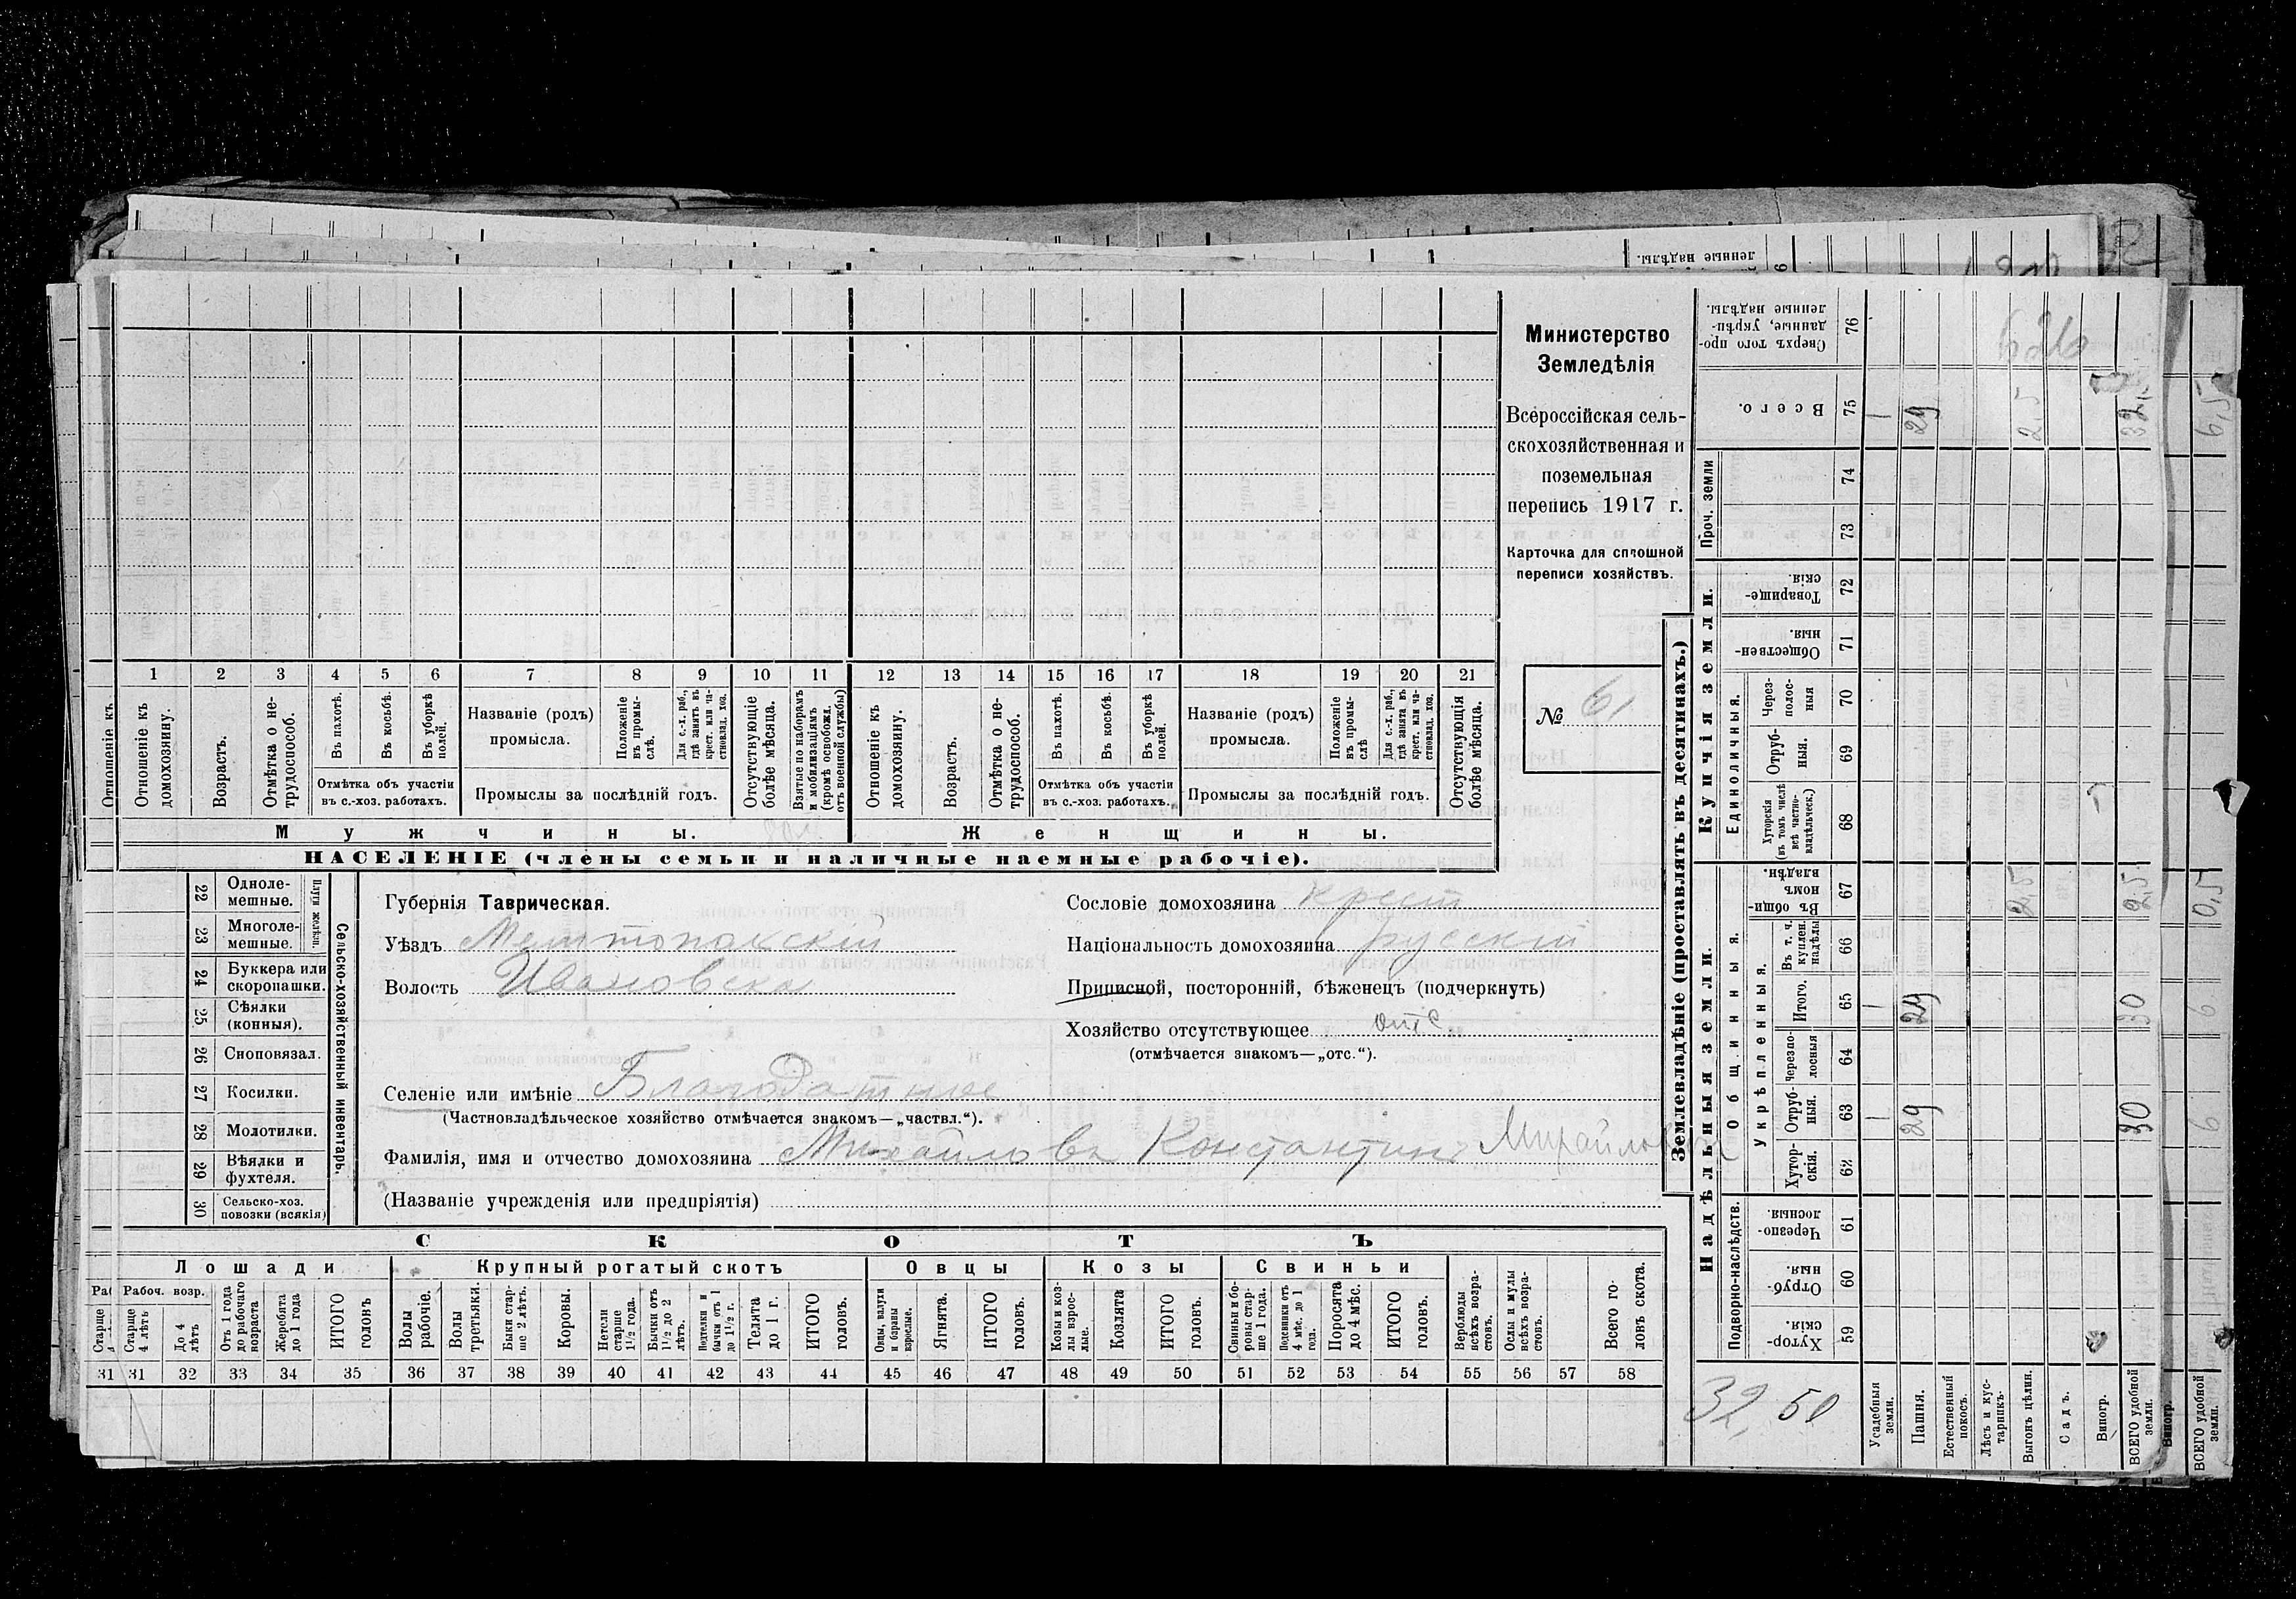 Министерство
Земледѣлія
Всероссійская сель-
скохозяйственная и
поземельная
перепись 1917 г.
Карточка для сплошной
переписи хозяйствъ.
№ 61
1 2 3 4 5 6 7 8 9 10 11 12 13 14 15 16 17 18 19 20 21
Отношеніе къ
Отношеніе къ домохозяину.
Возрастъ.
Отмѣтка о не-трудоспособ.
Въ пахотѣ.
Въ косьбѣ.
Въ уборкѣ полей.
Отмѣтка объ участіи
въ с.-хоз. работахъ.
Названіе (родъ)
промысла.
Положеніе въ промы-слѣ.
Для с.-х. раб., гдѣ занятъ въ крест. или ча-стновлад. хоз.
Промыслы за послѣдній годъ.
Отсутствующіе болѣе мѣсяца.
Взятые по наборамъ и мобилизаціямъ (кромѣ освобожд. отъ военной службы)
Отношеніе къ домохозяину.
Возрастъ.
Отмѣтка о не-трудоспособ.
Въ пахотѣ.
Въ косьбѣ.
Въ уборкѣ полей.
Отмѣтка объ участіи
въ с.-хоз. работахъ.
Названіе (родъ)
промысла.
Положеніе въ промы-слѣ
Для с.-х. раб., гдѣ занята въ крест. или ча-стновлад. хоз.
Промыслы за послѣдній годъ.
Отсутствующія болѣе мѣсяца.
Мужчины.
Женщины.
НАСЕЛЕНІЕ (члены семьи и наличные наемные рабочіе).
22 Одноле-мешные.
23 Многоле-мешные.
Плуги желѣзн.
24 Буккера или скоропашки.
25 Сѣялки (конныя).
26 Сноповязал.
27 Косилки.
28 Молотилки.
29 Вѣялки и фухтеля.
30 Сельско-хоз. повозки (всякія)
Сельско-хозяйственный инвентарь.
Губернія Таврическая.
Уѣздъ Мелитопольскій
Волость Ивановска
Селеніе или имѣніе Благодатное
(Частновладѣльческое хозяйство отмѣчается знакомъ—„частвл.“).
Фамилія, имя и отчество домохозяина Михайловъ Константинъ Михайлов
(Названіе учрежденія или предпріятія)
Сословіе домохозяина крест
Національность домохозяина русскій
Приписной, посторонній, бѣженецъ (подчеркнуть)
Хозяйство отсутствующее отс.
(отмѣчается знакомъ—„отс.“).
СКОТЪ
Лошади
Рабоч. возр.
Старше 4 лѣтъ
До 4 лѣтъ
Отъ 1 года до рабочаго возраста
Жеребята до 1 года
ИТОГО головъ
Крупный рогатый скотъ
Волы рабочіе.
Волы третьяки.
Быки стар-ше 2 лѣтъ.
Коровы.
Нетели старше 1½ года.
Бычки отъ 1½ до 2 лѣтъ.
Подтелки и бычки отъ 1 до 1½ г.
Телята до 1 г.
ИТОГО головъ.
Овцы
Овцы, валухи и бараны взрослые.
Ягнята.
ИТОГО головъ.
Козы
Козы и коз-лы взрос-лые.
Козлята
ИТОГО головъ.
Свиньи
Свиньи и бо-ровы стар-ше 1 года.
Подсвинки отъ 4 мѣс. до 1 года.
Поросята до 4 мѣс.
ИТОГО головъ.
Верблюды всѣхъ возра-стовъ.
Ослы и мулы всѣхъ возра-стовъ.
Всего го-ловъ скота.
31 31 32 33 34 35 36 37 38 39 40 41 42 43 44 45 46 47 48 49 50 51 52 53 54 55 56 57 58
Землевладѣніе (проставлять въ десятинахъ.)
Надѣльныя земли.
Купчія земли.
Проч. земли
Подворно-наслѣдств.
Общинныя.
Укрѣпленныя.
Единоличныя.
Хутор-скія. 59
Отруб-ныя. 60
Черезпо-лосныя. 61
Хутор-скія. 62
Отруб-ныя. 63 1 29 30
Черезпо-лосныя 64
Итого. 65 1 29 30
Въ т. ч. куплен. надѣлы 66
Въ общи-номъ владѣн. 67 2,5 2,5
Хуторскія (въ томъ числѣ всѣ частно-владѣльческ.) 68
Отруб-ныя. 69
Через-полос-ныя 70
Обществен-ныя. 71
Товарище-скія. 72
73
74
Всего. 75 1 29 2,5 32,5
Сверхъ того про-данные, укрѣп-ленные надѣлы. 76
32,50
Усадебныя земли.
Пашня.
Естественный покосъ.
Лѣсъ и кус-тарникъ.
Выгонъ цѣлин.
Садъ.
Виногр.
ВСЕГО удобной земли.
Виногр.
ВСЕГО удобной земли.
6,5
0,5
6
6
ленные надѣлы.